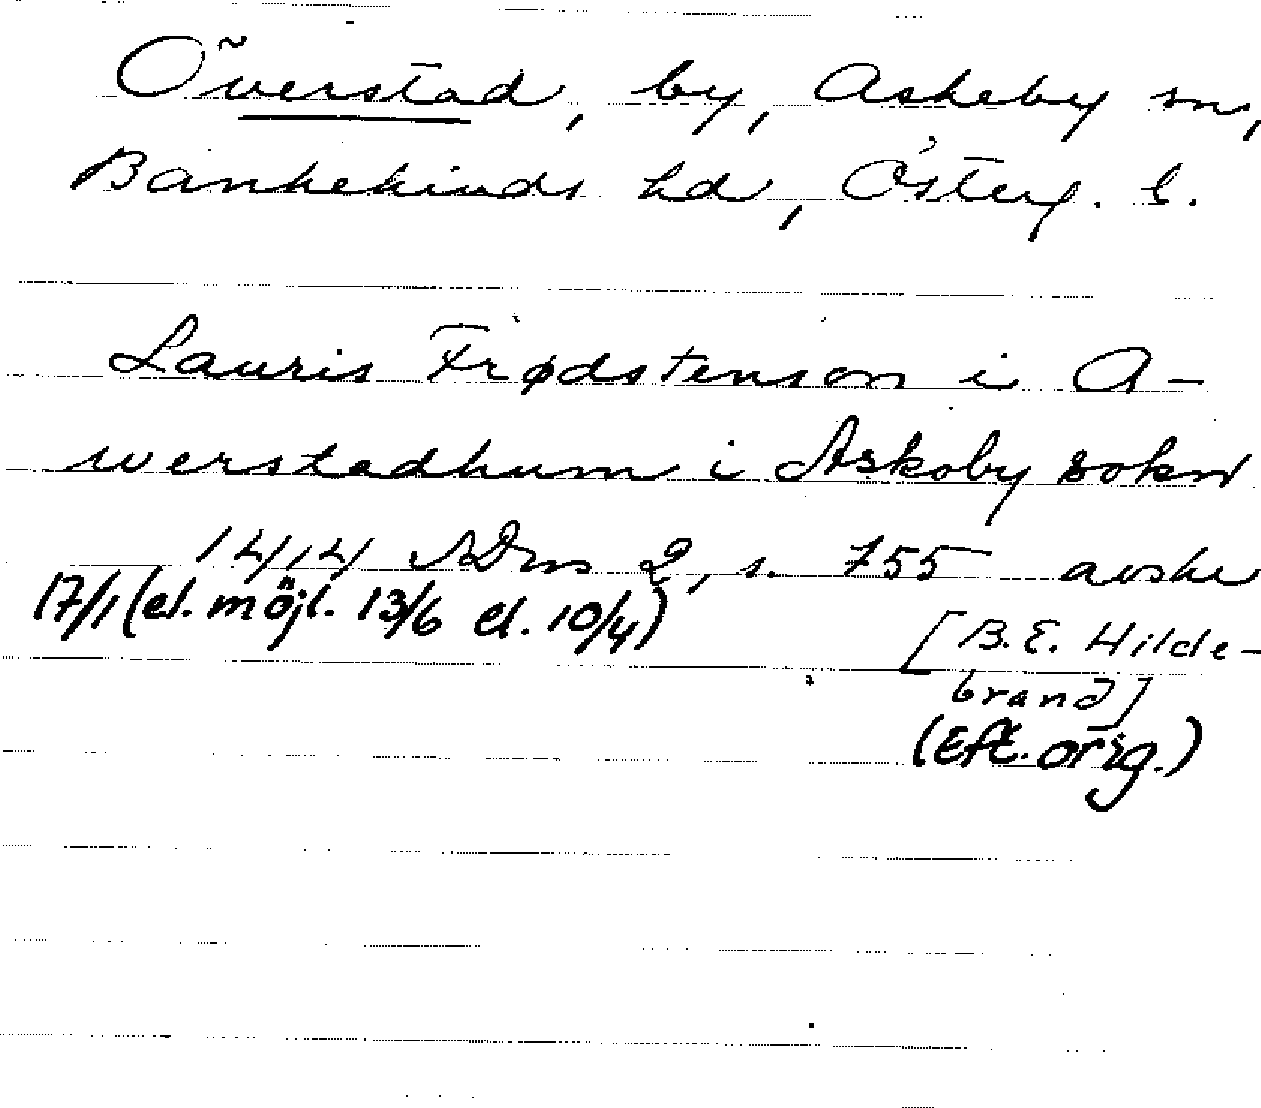 Överstad, by, Askeby sn,
Bankekinds hd, Österg. l.
Lauris Frødstenson i A-
werstadhum i Askoby sokn
1414 ADms 2, s. 755 avskr
17/1 (el. möjl. 13/6 el. 10/4)
[B.E. Hilde-
brand]
(Eft. orig.)